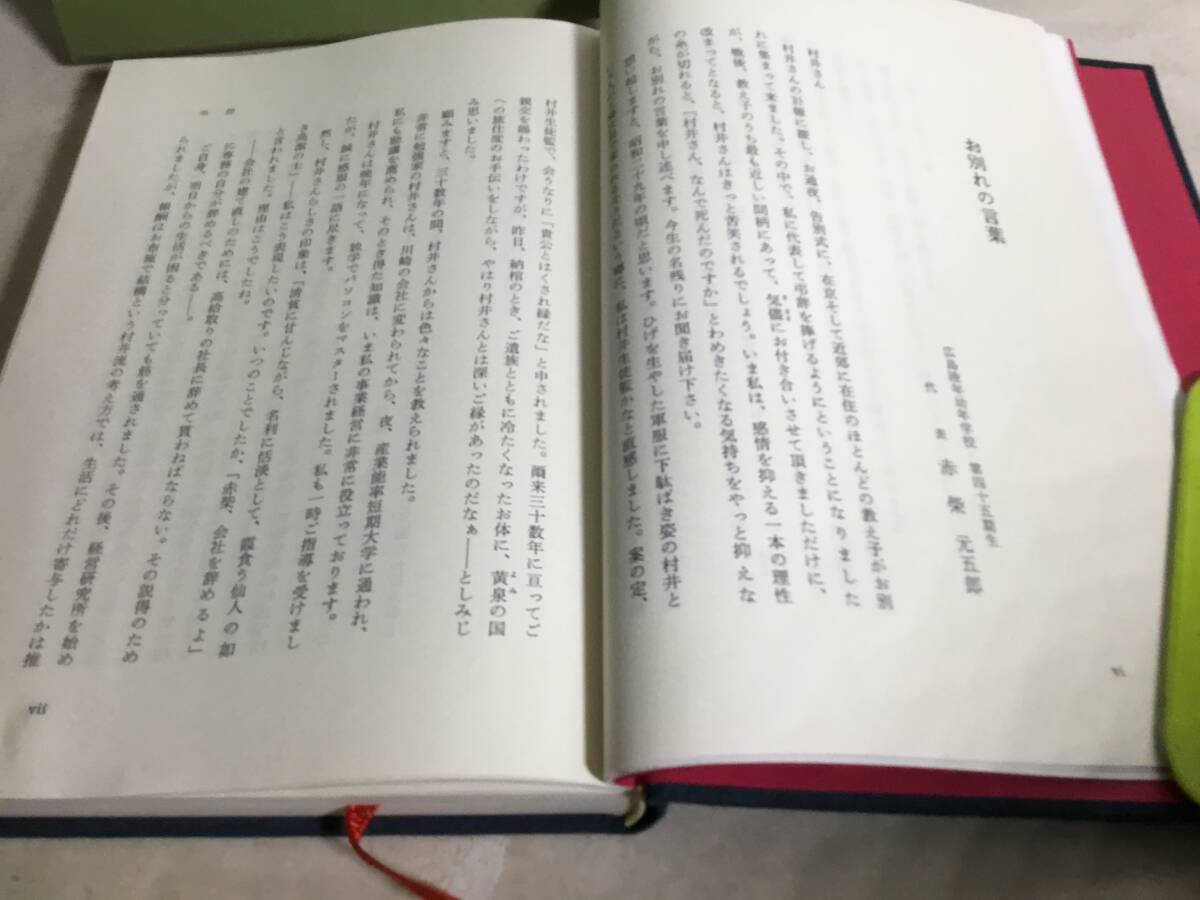 お別れの言葉
広島陸軍幼年学校 第四十五期生
代表 赤柴 元五郎
村井さん
村井さんの訃報に接し、お通夜、告別式に、在京そして近郊に在住のほとんどの教え子がお別
れに集まって来ました。その中で、私に代表して弔辞を捧げるようにということになりました
が、戦後、教え子のうち最も近しい間柄にあって、気儘にお付き合いさせて頂きましただけに、
改まってとなると、村井さんはきっと苦笑されるでしょう。いま私は、感情を抑える一本の理性
の糸が切れると、「村井さん、なんで死んだのですか」とわめきたくなる気持ちをやっと抑えな
がら、お別れの言葉を申し述べます。今生の名残りにお聞き届け下さい。
思い起しますと、昭和二十九年の頃だと思います。ひげを生やした軍服に下駄ばき姿の村井と
私は村井生徒監かなと直感しました。案の定、
vi
村井生徒監で、会うなりに「貴公とはくされ縁だな」と申されました。爾来三十数年に亘ってご
親交を賜わったわけですが、昨日、納棺のとき、ご遺族とともに冷たくなったお体に、黄泉の国
よみ
への旅仕度のお手伝いをしながら、やはり村井さんとは深いご縁があったのだなぁ――としみじ
み思いました。
顧みますと、三十数年の間、村井さんからは色々なことを教えられました。
非常に勉強家の村井さんは、川崎の会社に変わられてから、夜、産業能率短期大学に通われ、
私にも聴講を薦められ、そのとき得た知識は、いま私の事業経営に非常に役立っております。
村井さんは晩年になって、独学でパソコンをマスターされました。私も一時ご指導を受けまし
たが、誠に感服の一語に尽きます。
然し、村井さんらしさの印象は、「清貧に甘んじながら、名利に恬淡として、霞食う仙人の如
き高潔の士」――私はこう表現したいのです。いつのことでしたか、「赤柴、会社を辞めるよ」
と言われました。理由はこうでしたね。
――会社の建て直しのためには、高給取りの社長に辞めて貰わねばならない。その説得のため
に専務の自分が辞めるべきである――。
ご自身、明日からの生活が困ると分っていても筋を通されました。その後、経営研究所を始め
られましたが、報酬はお布施で結構という村井流の考え方では、生活にどれだけ寄与したかは推
vii